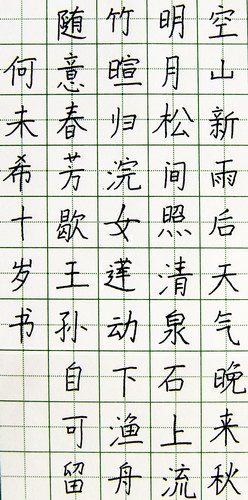 空山新雨后天气晚来秋
明月松间照清泉石上流
竹暄归浣女莲动下渔舟
随意春芳歇王孙自可留
何未希十岁书